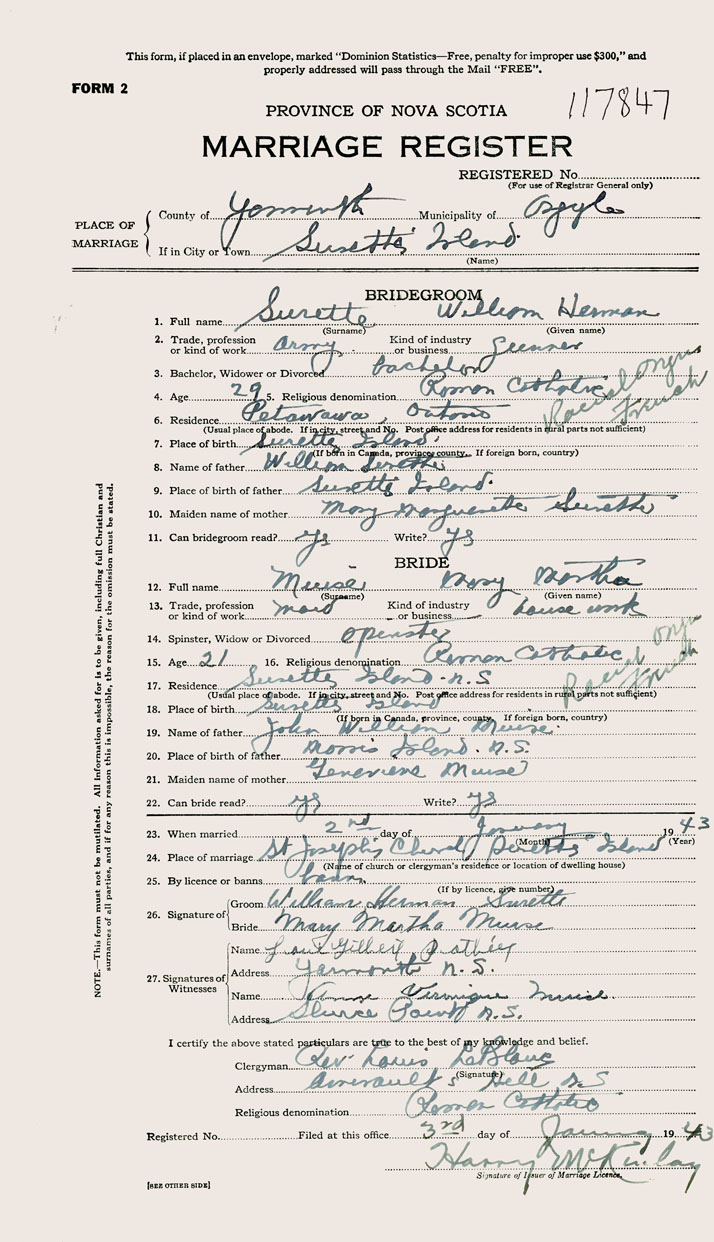 This form, if placed in an envelope, marked "Dominion Statistics—Free, penalty for improper use $300," and
properly addressed will pass through the Mail "FREE".
FORM 2
117847
PROVINCE OF NOVA SCOTIA
MARRIAGE REGISTER
REGISTERED No.
(For use of Registrar General only)
PLACE OF MARRIAGE
County of Yarmouth Municipality of Argyle
If in City or Town Surette's Island
(Name)
BRIDEGROOM
1. Full name Surette William Herman
(Surname) (Given name)
2. Trade, profession or kind of work Army Kind of industry or business Gunner
3. Bachelor, Widower or Divorced bachelor
4. Age 29 5. Religious denomination Roman Catholic
Racial Origin French
6. Residence Petawawa, Ontario
(Usual place of abode. If in city, street and No. Post office address for residents in rural parts not sufficient)
7. Place of birth Surette Island
(If born in Canada, province, county. If foreign born, country)
8. Name of father William Surette
9. Place of birth of father Surette Island
10. Maiden name of mother Mary Marguerette Surette
11. Can bridegroom read? ys Write? ys
BRIDE
12. Full name Muise Mary Martha
(Surname) (Given name)
13. Trade, profession or kind of work maid Kind of industry or business house work
14. Spinster, Widow or Divorced spinster
15. Age 21 16. Religious denomination Roman Catholic
Racial Origin French
17. Residence Surette Island - N.S
(Usual place of abode. If in city, street and No. Post office address for residents in rural parts not sufficient)
18. Place of birth Surette Island
(If born in Canada, province, county. If foreign born, country)
19. Name of father John William Muise
20. Place of birth of father Morris Island. N.S.
21. Maiden name of mother Genevieve Muise
22. Can bride read? ys Write? ys
23. When married 2nd day of January 1943
(Month) (Year)
24. Place of marriage St Joseph's Church Surette Island
(Name of church or clergyman's residence or location of dwelling house)
25. By licence or banns banns
(If by licence, give number)
26. Signature of
Groom William Herman Surette
Bride Mary Martha Muise
27. Signatures of Witnesses
Name Gilbert
Address Yarmouth N.S.
Name Anne Veronique Muise
Address Sluice Point N.S.
I certify the above stated particulars are true to the best of my knowledge and belief.
Clergyman Rev. Louis LeBlanc
(Signature)
Address Amirault's Hill N.S
Religious denomination Roman Catholic
Registered No. Filed at this office 3rd day of January 1943
Harry McKinlay
Signature of Issuer of Marriage Licence.
[SEE OTHER SIDE]
NOTE.—This form must not be mutilated. All Information asked for is to be given, including full Christian and
surnames of all parties, and if for any reason this is impossible, the reason for the omission must be stated.